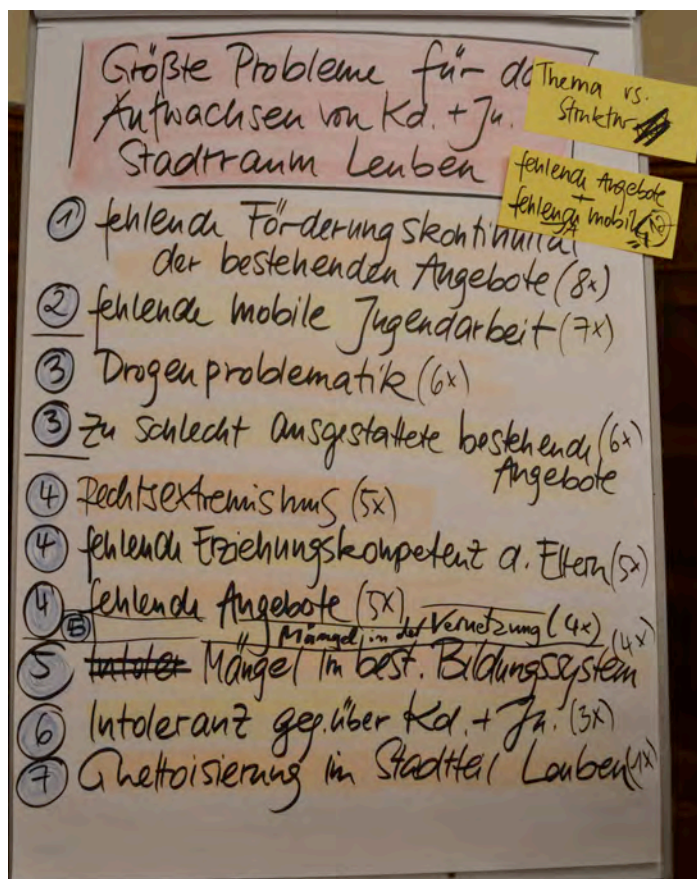 Größte Probleme für da
Aufwachsen von Kd. + Ju.
Stadtraum Leuben
Thema vs.
Struktur
fehlende Angebote
+
fehlende mobile
① fehlende Förderungskontinuität
der bestehenden Angebote (8x)
② fehlende mobile Jugendarbeit (7x)
③ Drogenproblematik (6x)
③ zu schlecht ausgestattete bestehende (6x)
Angebote
④ Rechtsextremismus (5x)
④ fehlende Erziehungskompetenz d. Eltern (5x)
④ fehlende Angebote (5x)
⑤ Mängel in der Vernetzung (4x)
⑤ Mängel im best. Bildungssystem (4x)
⑥ Intoleranz geg.über Kd. + Ju. (3x)
⑦ Ghettoisierung im Stadtteil Leuben (1x)